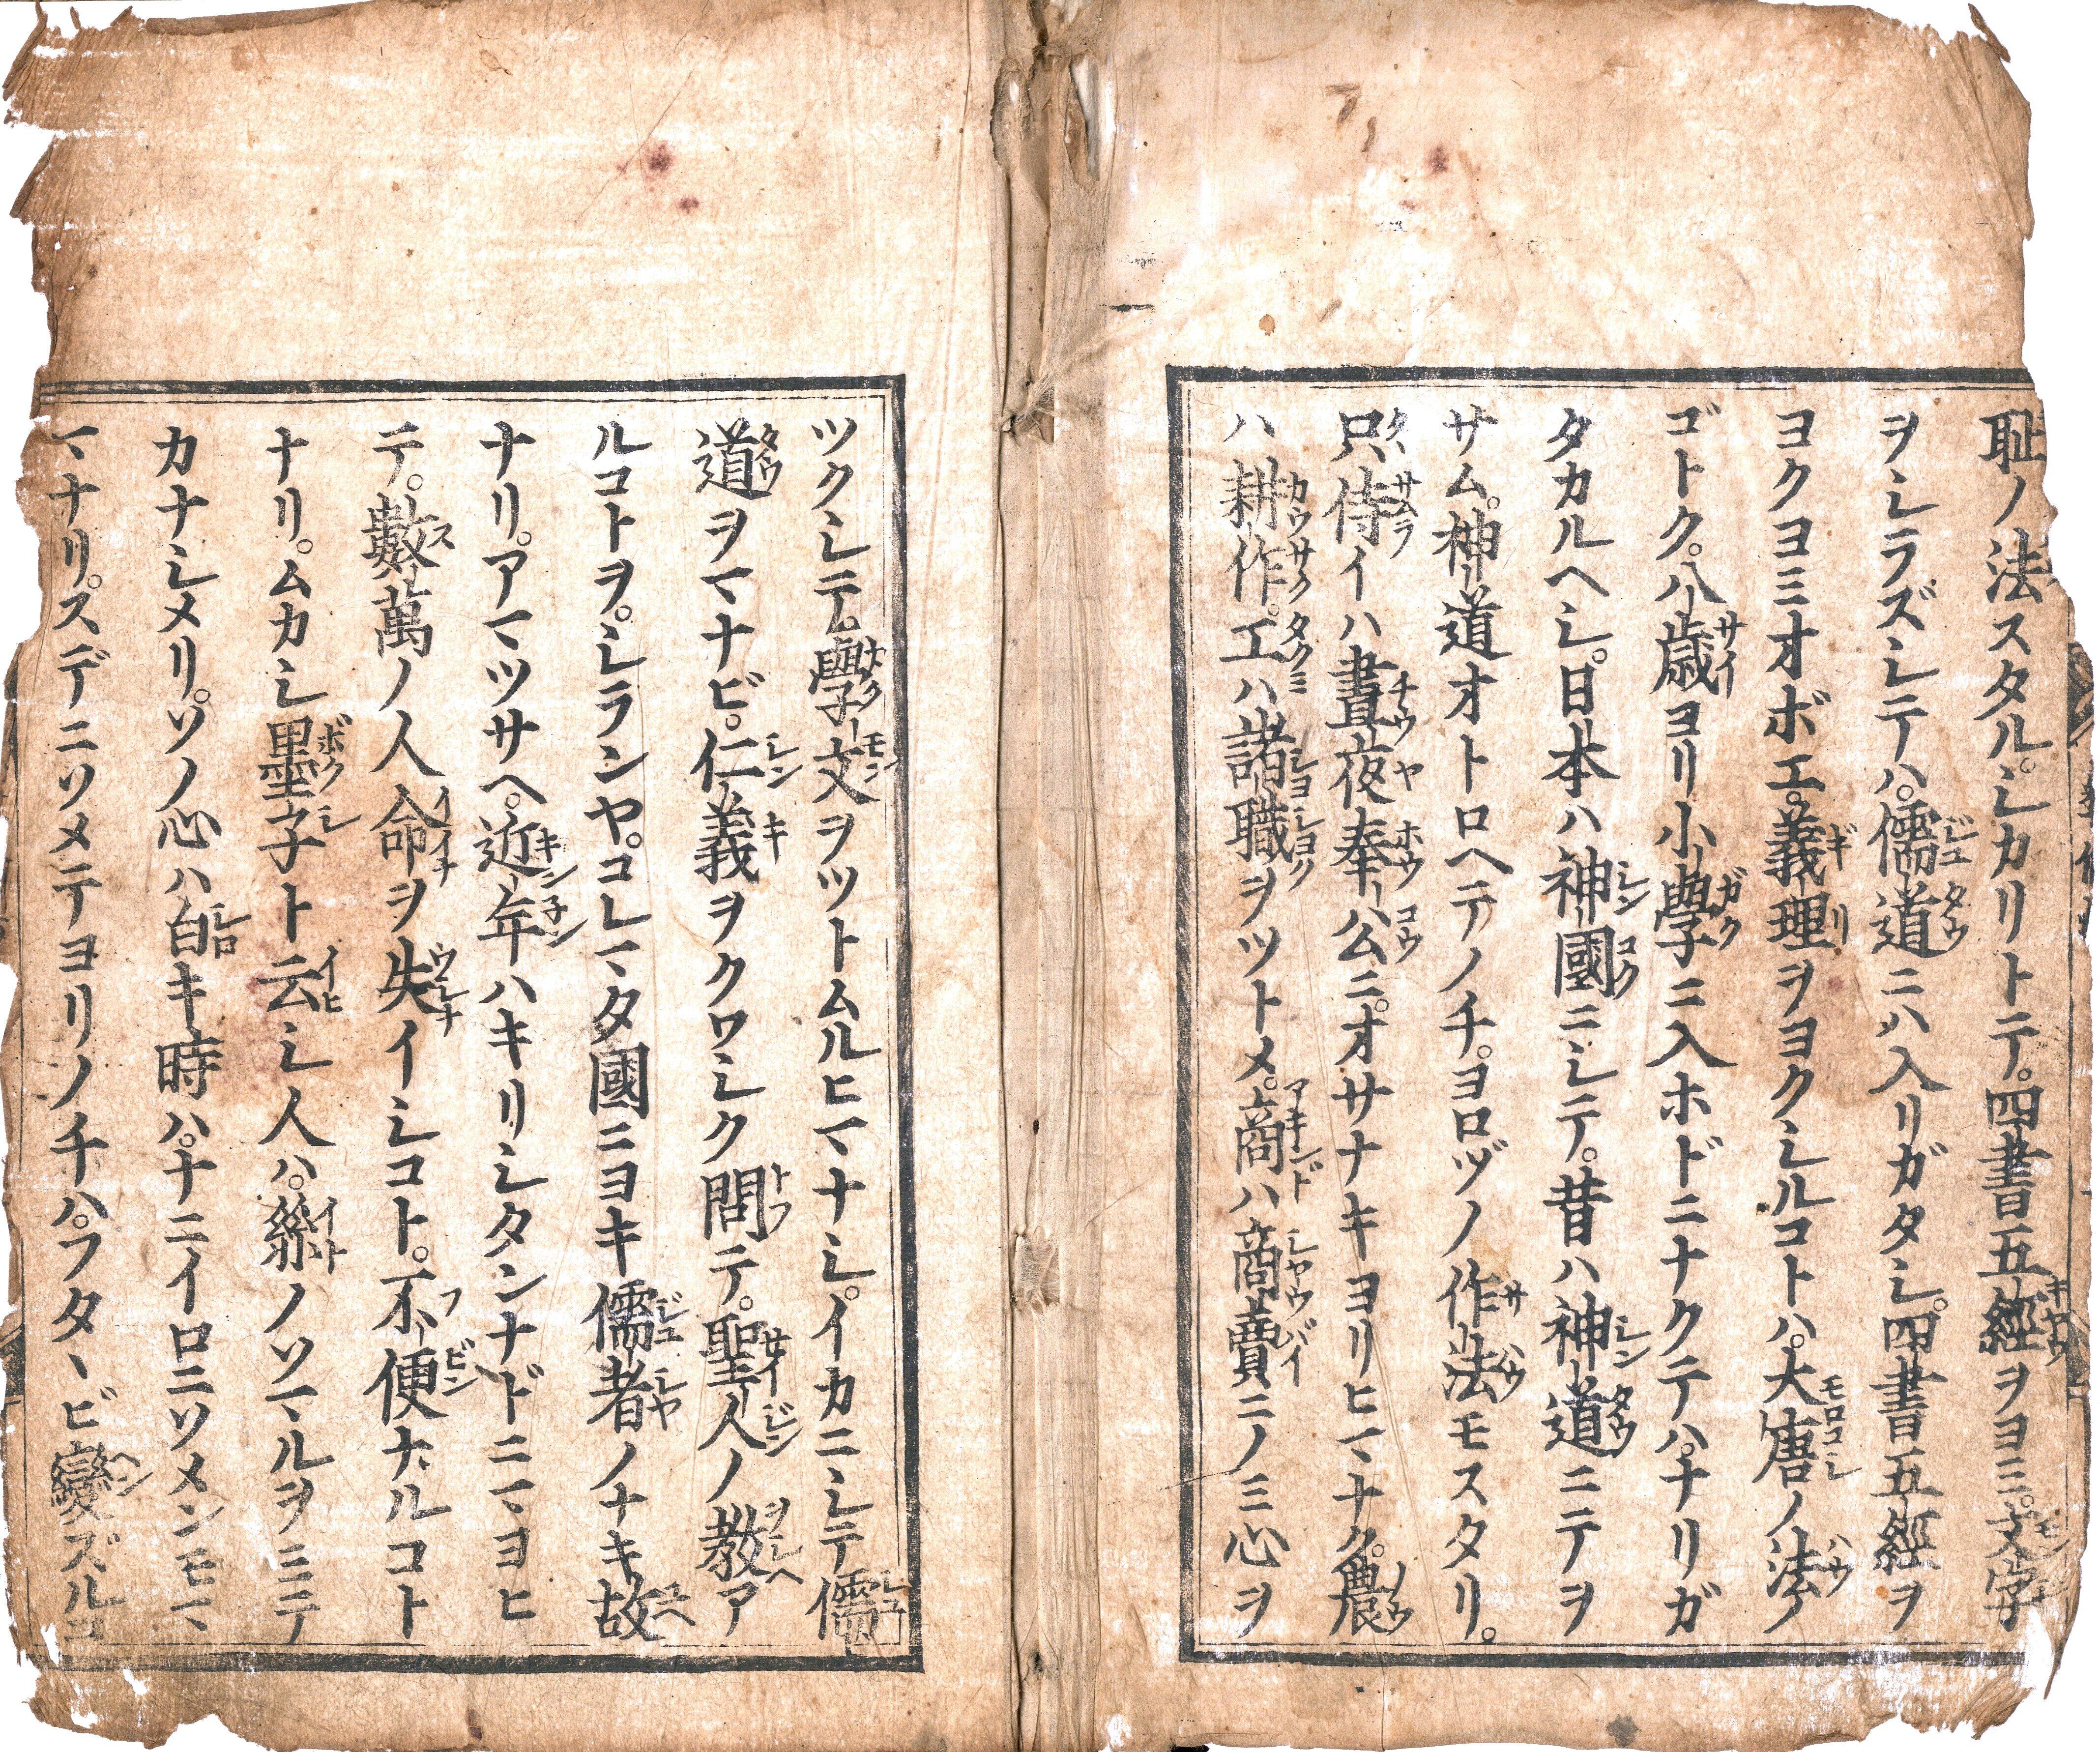 耻ノ法スタル。シカリトテ。四書五經ヲヨミ。文字
ヲシラズシテハ。儒道ニハ入リガタシ。四書五經ヲ
ヨクヨミオボエ。義理ヲヨクシルコトハ。大唐ノ法ノ
ゴトク。八歳ヨリ小學ニ入ホドニナクテハ。ナリガ
タカルヘシ。日本ハ神國ニシテ。昔ハ神道ニテヲ
サム。神道オトロヘテノチ。ヨロヅノ作法モスタリ。
只侍イハ晝夜奉公ニ。オサナキヨリヒマナク。農
ハ耕作。工ハ諸職ヲツトメ。商ハ商賣ニノミ心ヲ
ツクシテ。學文ヲツトムルヒマナシ。イカニシテ儒
道ヲマナビ。仁義ヲクワシク問テ。聖人ノ教ア
ルコトヲ。シランヤ。コレマタ國ニヨキ儒者ノナキ故
ナリ。アマツサヘ。近年ハキリシタンナドニマヨヒ
テ。數萬ノ人命ヲ失イシコト。不便ナルコト
ナリ。ムカシ墨子ト云シ人ハ。絲ノソマルヲミテ
カナシメリ。ソノ心ハ白キ時ハ。ナニイロニソメンモマ
マナリ。スデニソメテヨリノチハ。フタヽビ變ズルコ